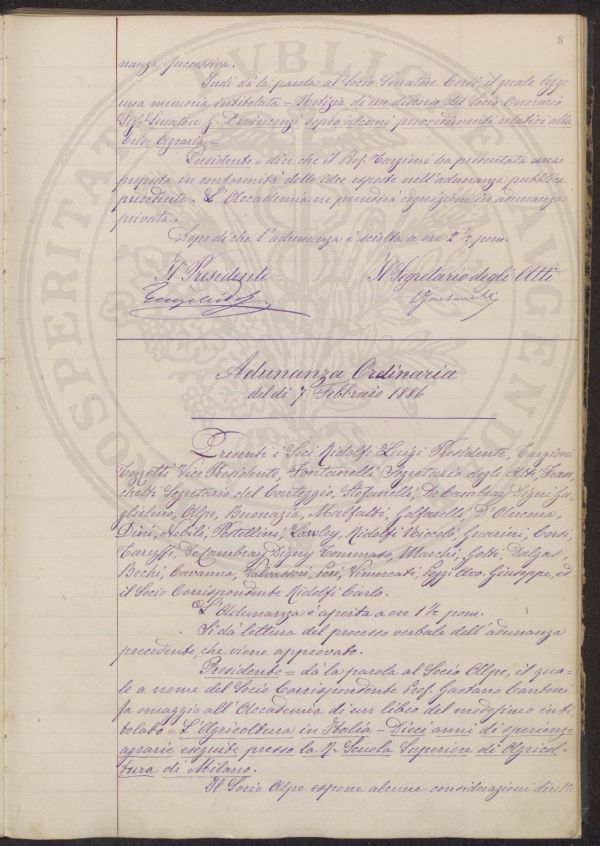 8
nanza successiva.
Indi dà la parola al Socio Senatore Corsi, il quale legge
una memoria intitolata = Notizia di un discorso del Socio Onorario
Sig. Senatore G. Devincenzi sopra alcuni provvedimenti relativi alla
Crise Agraria =
Presidente = dice che il Prof. Targioni ha presentata una
proposta in conformità delle idee esposte nell'adunanza pubblica
precedente. L'Accademia ne prenderà cognizione in adunanza
privata.
Dopo di che l'adunanza è sciolta a ore 2 ½ pom.
Il Presidente Il Segretario degli Atti
Adunanza Ordinaria
del dì 7 Febbraio 1886
Presenti i Soci Ridolfi Luigi Presidente, Targioni
Tozzetti Vice Presidente, Fontanelli Segretario degli Atti, Fran-
chetti Segretario del Carteggio, Stefanelli, De Cambray Digny Gu-
glielmo, Alpe, Buonazia, Malfatti, Golfarelli, D'Ancona,
Dini, Nobili, Pestellini, Lawley, Ridolfi Niccolò, Guerrini, Corsi,
Caruffi, De Cambray Digny Tommaso, Marchi, Gotti, Dalgas,
Bechi, Cavanna, Valvassori, Peri, Vimercati, Poggi Avv. Giuseppe, ed
il Socio Corrispondente Ridolfi Carlo.
L'Adunanza è aperta a ore 1 ½ pom.
Si dà lettura del processo verbale dell'adunanza
precedente, che viene approvato.
Presidente = dà la parola al Socio Alpe, il qua-
le a nome del Socio Corrispondente Prof. Gaetano Cantoni
fa omaggio all'Accademia di un libro del medesimo inti-
tolato = L'Agricoltura in Italia - Dieci anni di esperienze
agrarie eseguite presso la R. Scuola Superiore di Agricol-
tura di Milano.
Il Socio Alpe espone alcune considerazioni